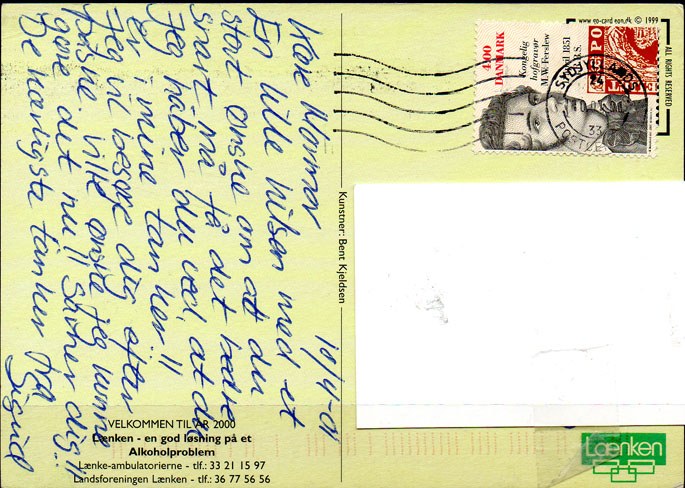 Kære Mormor 10/4-01
En lille hilsen med et
stort ønske om at du
snart må få det bedre
Jeg håber du ved, at du
er i mine tanker!!
Jeg vil besøge dig efter
påske. Ville ønske jeg kunne
gøre det nu!! Savner dig!!
De kærligste tanker fra
Sigrid
VELKOMMEN TIL ÅR 2000
Lænken - en god løsning på et
Alkoholproblem
Lænke-ambulatorierne - tlf.: 33 21 15 97
Landsforeningen Lænken - tlf.: 36 77 56 56
Kunstner: Bent Kjeldsen
www.eo-card eon.dk © 1999
ALL RIGHTS RESERVED
4.00
DANMARK
Kongelig
hofgravør
M.W. Ferslew
april 1851
R.B.S.
Lænken